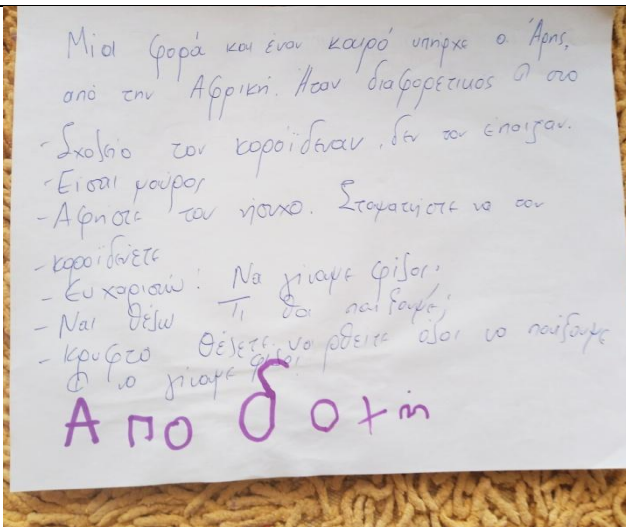 Μία φορά και έναν καιρό υπήρχε ο Άρης,
από την Αφρική. Ήταν διαφορετικος στο
- Σχολείο τον κοροϊδευαν, δεν τον επαιζαν.
- Είσαι μαύρος
- Αφήστε τον ήσυχο. Σταματήστε να τον
- κοροϊδεύετε
- Ευχαριστώ! Να γίνουμε φίλοι;
- Ναι θέλω Τι θα παίξουμε;
- Κρυφτο Θέλετε να ρθειτε όλοι να παίξουμε
να γίνουμε φίλοι
Αποδοχή